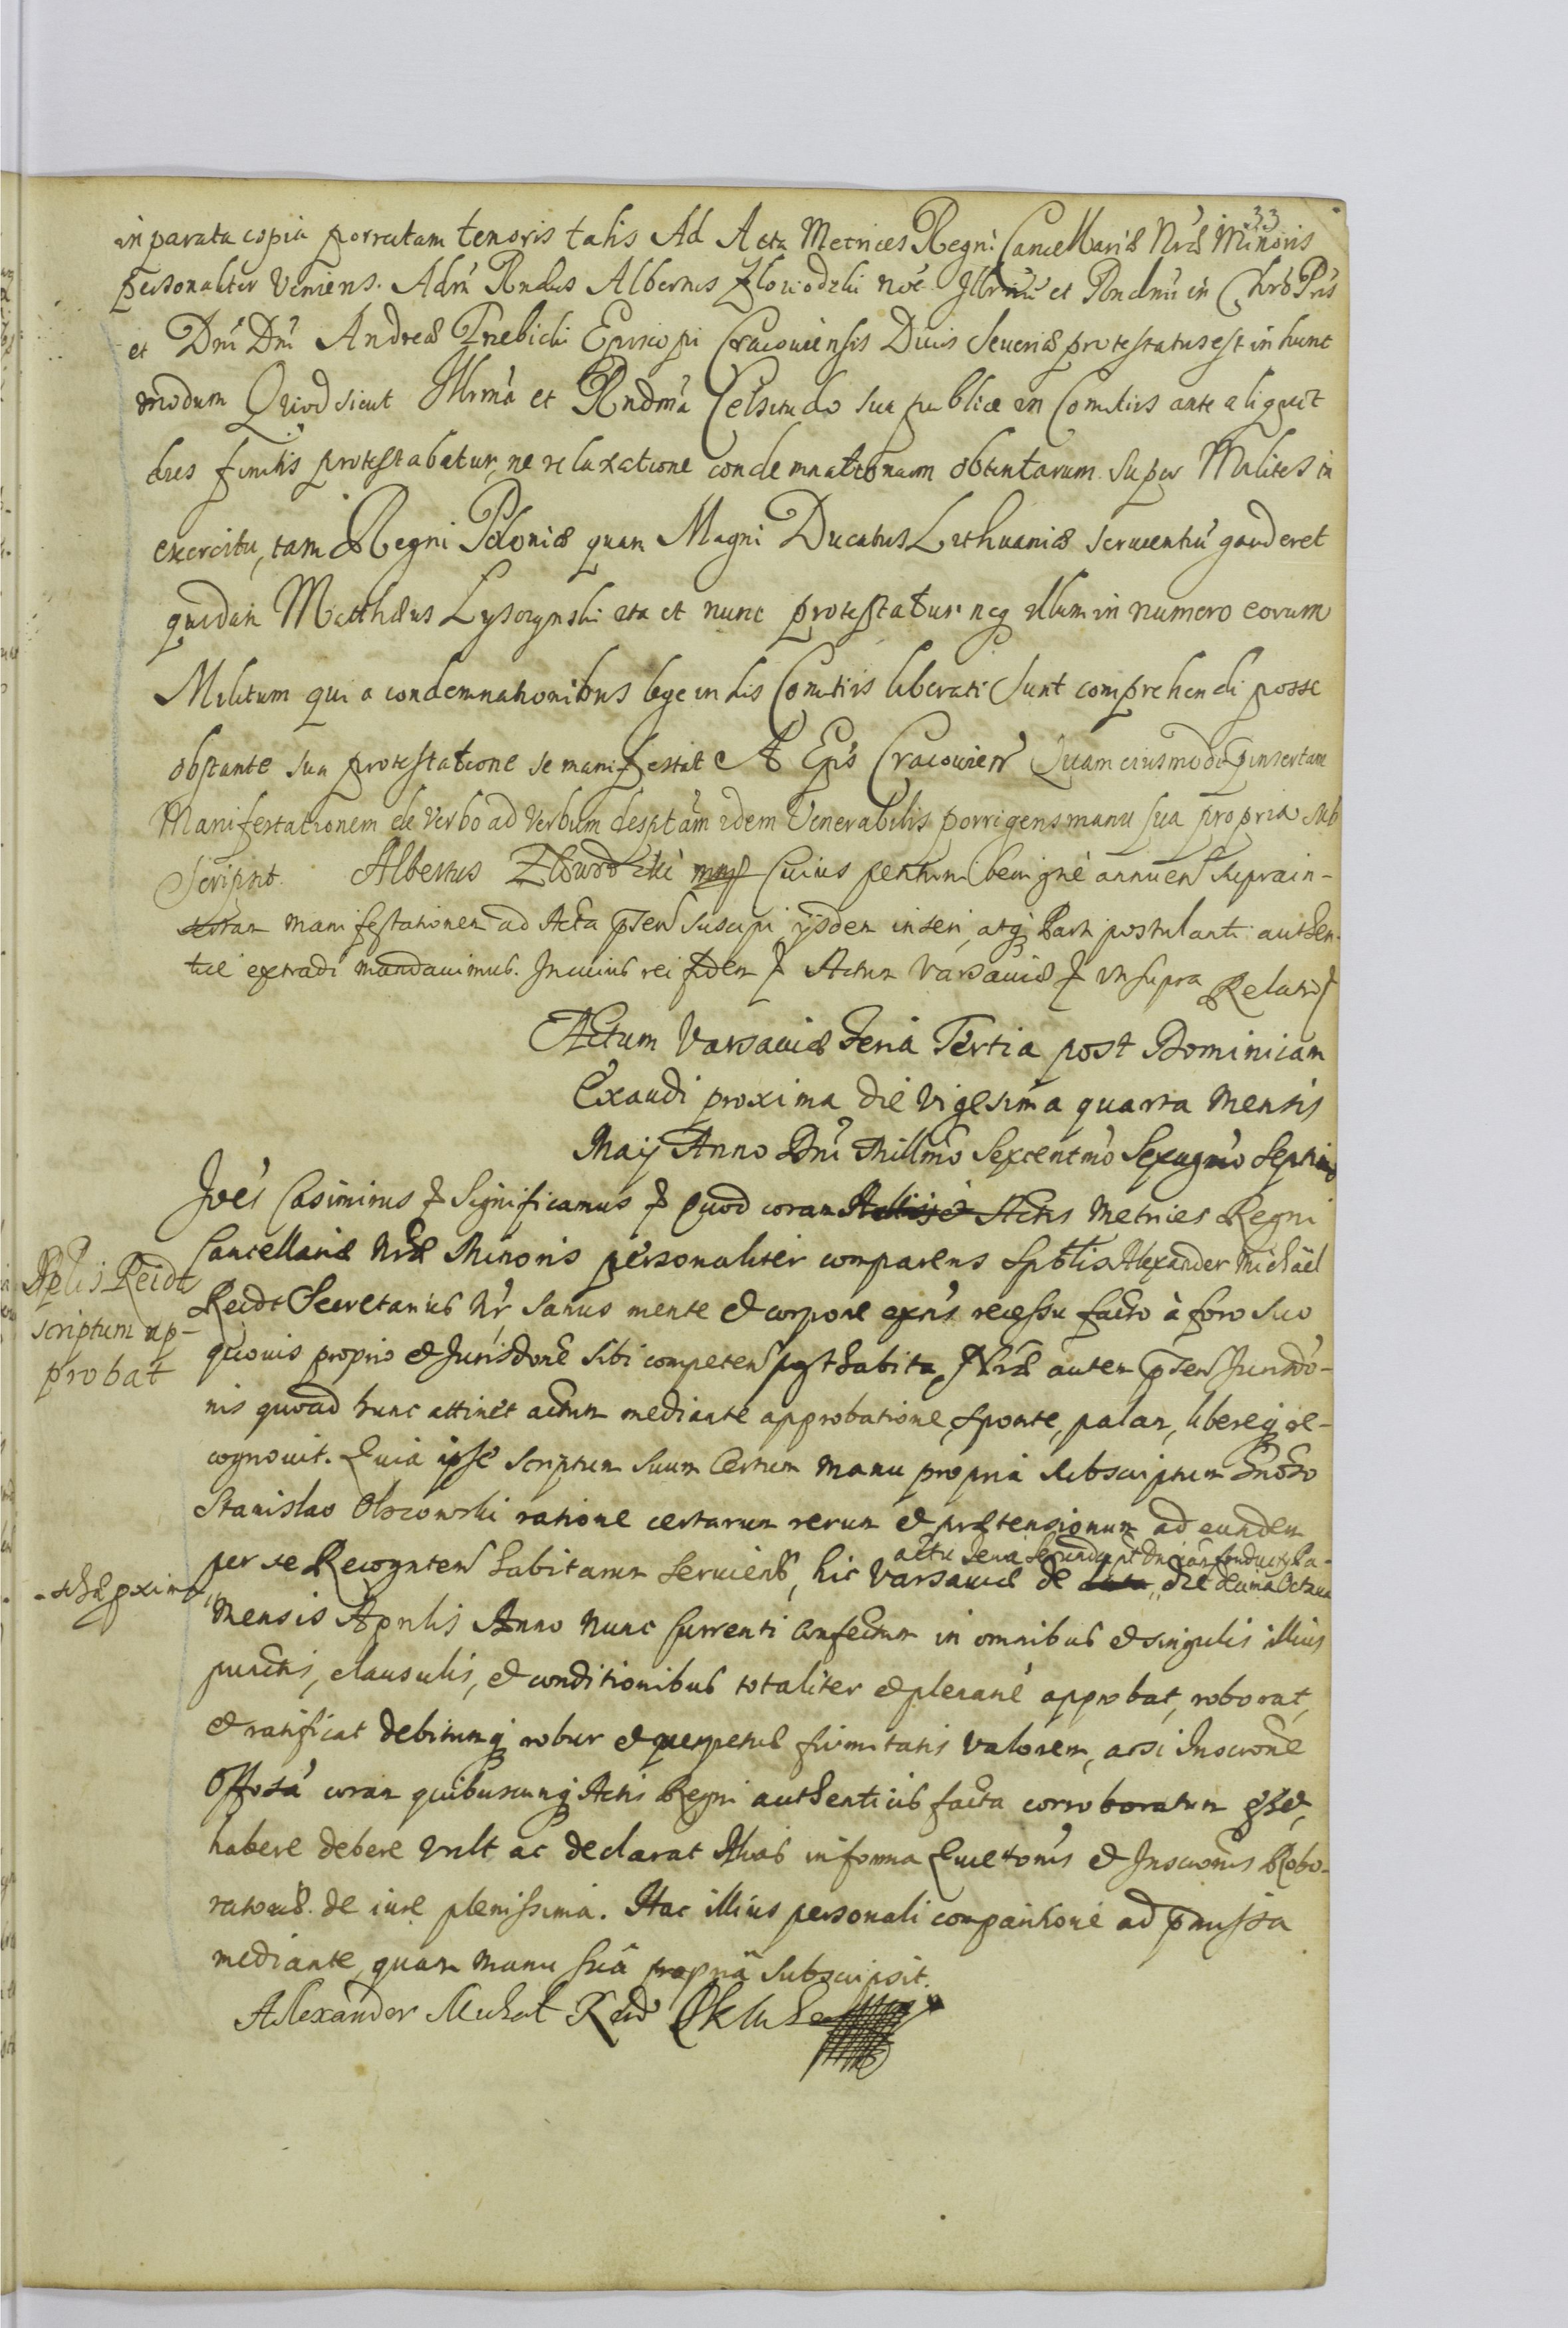 33
in parata copia porrectam tenoris talis Ad Acta Metrices Regni Cancellariæ Nræ Minoris
personaliter Veniens. Adm̃ Rndus Albertus Zlowodzki noẽ Illrmi et Rndmi in Chro Pris
et Dni Dni Andreæ Trebicki Episcopi Cracouiensis Ducis Seueriæ protestatus est in hunc
modum Quod sicut Illrma et Rndma Celsitudo sua publice in Comitiis ante aliquot
dies finitis protestabatur, ne relaxatione condemnationum obtentarum super Milites in
exercitu, tam Regni Poloniæ quam Magni Ducatus Lithuaniæ seruientiũ gauderet
quidam Matthæus Lysozynski ita et nunc protestatur neq illum in numero eorum
Militum qui a condemnationibus lege in his Comitiis liberati sunt comprehendi posse
obstante sua protestatione se manifestat A Eps Cracouien Quam eiusmodi p̃insertam
Manifestationem de Verbo ad Verbum descptam idem Venerabilis porrigens manu sua propria sub
scripsit. Albertus Zlowodzki mp Cuius petitioni benignè annuen suprain-
sertam manifestationem ad Acta p̃sen suscipi, ijsdem inseri, atq Parti postulanti authen-
tice extradi mandauimus. In cuius rei fidem Actum Varsauiæ ut supra Relatio
Actum Varsauiæ Feria Tertia post Dominicam
Exaudi proxima die Vigesima quarta Mensis
Maij Anno Dni Millmo Sexcentmo Sexagmo Septimo
Joẽs Casimirus Significamus Quod coram Actis Metrices Regni
Cancellariæ Nræ Minoris personaliter comparens Spblis Alexander Michaël
Reidt Secretarius Nr, sanus mente et corpore exns recessu facto à foro suo
Spblis Reidt
scriptum ap-
probat
quouis proprio et Jurisdone sibi competen posthabita, Nræ autem p̃sen Jurisdo-
nis quoad hunc attinet actum mediante approbatione, sponte, palam, libereq re-
cognouit. Quia ipse scriptum suum Certum manu propria subscriptum Gnoso
Stanislao Olszowski ratione certarum rerum et prætensionum ad eundem
per se Recognten habitarum seruiens, hic Varsauiæ de data, die decima Octaua
actu feria secunda pt Dnicam Conductus Pa-
-schæ pxima
Mensis Aprilis Anno nunc currenti confectum in omnibus et singulis illius
punctis, clausulis, et conditionibus totaliter et plenarie approbat, roborat,
et ratificat debitumq robur et perpetuæ firmitatis valorem, acsi Inscrone
Offosa coram quibuscunq Actis Regni authenticis facta corroboratum esset,
habere debere vult ac declarat Alias in forma Quietonis et Inscronis Robo-
ratoriæ de iure plenissima. Hac illius personali comparitione ad p̃missa
mediante, quam manu sua propria subscripsit.
Alexander Michal Reid